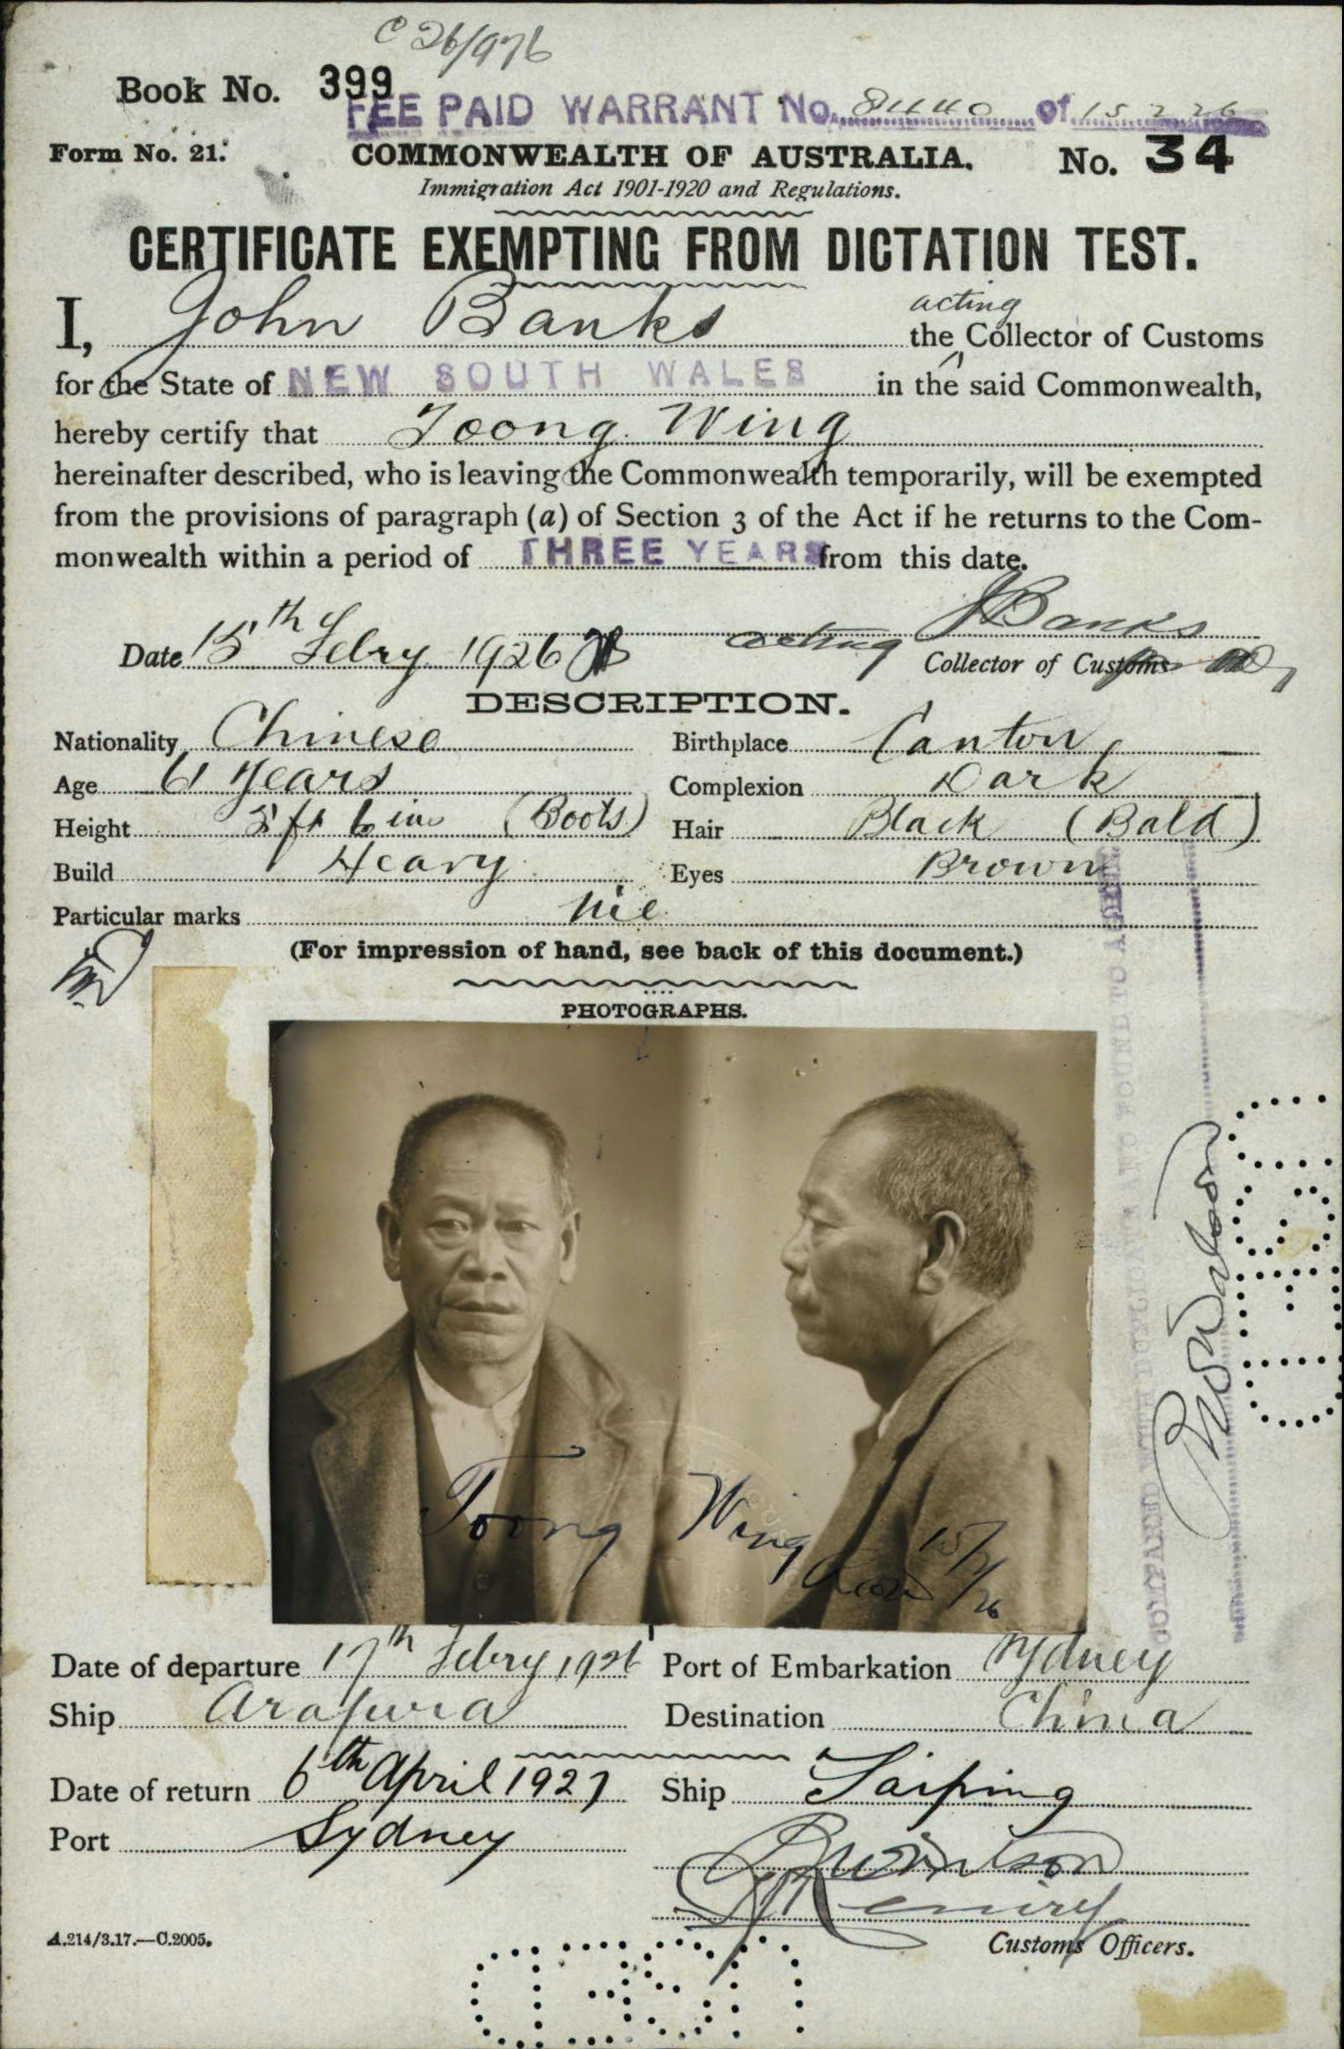 C 26/976
Book No. 399
FEE PAID WARRANT No. 8440 of 15 2 26
Form No. 21.
COMMONWEALTH OF AUSTRALIA.
No. 34
Immigration Act 1901-1920 and Regulations.
CERTIFICATE EXEMPTING FROM DICTATION TEST.
acting
I, John Banks the ^ Collector of Customs
for the State of NEW SOUTH WALES in the said Commonwealth,
hereby certify that Toong Wing
hereinafter described, who is leaving the Commonwealth temporarily, will be exempted
from the provisions of paragraph (a) of Section 3 of the Act if he returns to the Com-
monwealth within a period of THREE YEARS from this date.
JBanks
Date 15th Febry 1926 JB acting Collector of Customs
DESCRIPTION.
Nationality Chinese Birthplace Canton
Age 61 Years Complexion Dark
Height 5 ft 6 ins (Boots) Hair Black (Bald)
Build Heavy Eyes Brown
Particular marks Nil
(For impression of hand, see back of this document.)
PHOTOGRAPHS.
Toong Wing
15/2/26
Date of departure 17th Febry 1926 Port of Embarkation Sydney
Ship Arafura Destination China
Date of return 6th April 1927 Ship Taiping
Port Sydney
Customs Officers.
A.214/3.17.—C.2005.